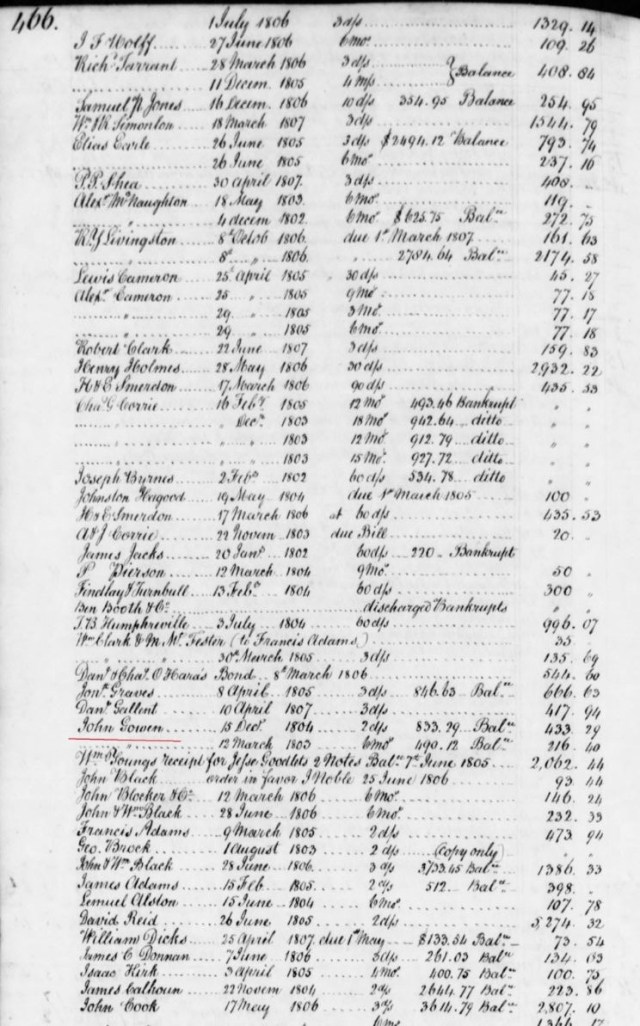 466. 1 July 1806 3 d/s 1329. 14
J F Wolff 27 June 1806 6 mo. 109. 26
Richd Tarrant 28 March 1806 3 d/s
11 Decem. 1805 4 m/s } Balance 408. 84
Samuel W Jones 16 Decem. 1806 10 d/s 354.95 Balance 254. 95
Wm W R Simonton 18 March 1807 3 d/s 1344. 79
Elias Earle 26 June 1805 3 d/s $2494.12 Balance 793. 74
26 June 1805 6 mo. 237. 16
P. P. Shea 30 April 1807. 3 d/s 408. "
Alexr McNaughton 18 May 1803. 6 mo. 119. "
" 4 decem 1802. 6 mo. $625.75 Balce 272. 75
R. Y Livingston 8th Octob 1806. due 1st March 1807. 161. 63
" 8th " 1806. " 2784.64 Balce 2174. 58
Lewis Cameron 25 April 1805 30 d/s 45. 27
Alexr Cameron 25 " 1805 9 Mo. 77. 18
" 29 " 1805 3 Mo. 77. 17
" 29 " 1805 6 mo. 77. 18
Robert Clark 22 June 1807 3 d/s 159. 83
Henry Holmes 28 May 1806 30 d/s 2,932. 22
H & E Smerdon 17 March 1806 90 d/s 435. 53
Chas G Corrie 16 Feby 1805 12 Mo. 493.46 Bankrupt " "
" Decr 1803 18 Mo. 942.64 ditto " "
" 1803 12 Mo. 912.79 ditto " "
" 1803 15 Mo. 927.72 ditto " "
Joseph Byrnes 2 Feby 1802 60 d/s 534.78 ditto " "
Johnston Hagood 19 May 1804 due 1st March 1805 100 "
H & E Smerdon 17 March 1806 at 60 d/s 435. 53
A & J Corrie 22 Novem 1803 due Bill 20. "
James Jacks 20 Jany 1802 60 d/s 220 Bankrupt
P Pierson 12 March 1804 9 Mo. 50 "
Findlay & Turnbull 13 Feby 1804 60 d/s 300 "
Ben Booth & Co discharged Bankrupts " "
T. B Humphreville 3 July 1804 60 d/s 996. 07
Wm Clark & M. W. Tester (to Francis Adams) 35. "
" 30th March 1805 3 d/s 135. 69
Danl & Chas O Hara's Bond 8th March 1806 544. 60
Jont Graves 8 April 1805 3 d/s 846.63 Balce 666. 63
Danl Gallent 10 April 1807 3 d/s 417. 94
John Gowen 18 Decr 1804 2 d/s 833.29 Balce 433. 29
" 12 March 1803 6 Mo. 490.12 Balce 216. 40
Wm Youngs receipt for Jesse Goodlets 2 Notes Balce 7th June 1805 2,062. 44
John Black order in favor J Noble 25 June 1806 93. 44
John Blocker & Co 12 March 1806 6 mo. 146. 24
John & Wm Black 28 June 1806 6 mo. 232. 33
Francis Adams 9 March 1805 2 d/s 473. 94
Geo. Brock 1 August 1803 2 d/s (copy only) " "
John & Wm Black 28 June 1806. 3 d/s 3733.45 Balce 1386. 33
James Adams 15 Feb 1805. 2 d/s 512 Balce 398. "
Lemuel Alston 15 June 1804 6 mo. 107. 78
David Reid 26 June 1805 2 d/s 3,274. 32
William Dicks 25 April 1807. due 1st May $133.54 Balce 73. 54
James C Donnan 7 June 1806 3 d/s 261.03 Balce 134. 63
Isaac Kirk 3 April 1805 4 mo. 400.75 Balce 100. 75
James Calhoun 22 Novem 1804 2 d/s 2644.77 Balce 223. 86
John Cook 17 May 1806 3 d/s 3614.79 Balce 2,807. 10
6 mo 1344. 17